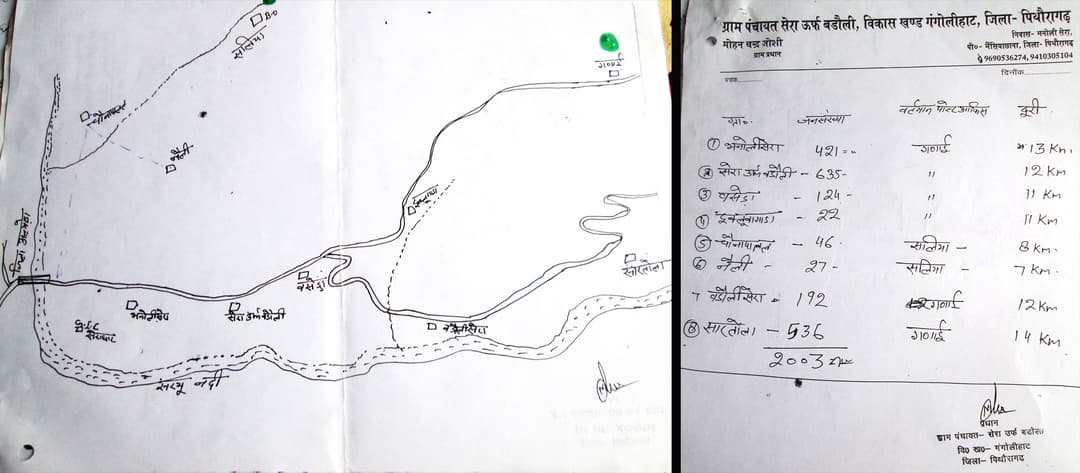 B.O
सलिया
गणाई
पौनापातल
नैली
इवलूवागाडा
जिला अल्मोड़ा
वसेड़ा
सारतोला
भनोलीसेरा
सेरा उर्फ बडौली
बडौलीसेरा
सेराघाट
सरयू नदी
ग्राम पंचायत सेरा उर्फ बडौली, विकास खण्ड गंगोलीहाट, जिला- पिथौरागढ़
मोहन चन्द्र जोशी
ग्राम प्रधान
निवास- भनोली सेरा,
पो०- भैंसियाछाना, जिला- पिथौरागढ़
9690536274, 9410305104
पत्रांक
दिनाँक
ग्रा०. जनसंख्या वर्तमान पोस्ट आफिस दूरी
① भनोलीसेरा 421 गणाई 13 Km.
② सेरा उर्फ बडौली - 635 - " 12 Km
③ वसेड़ा - 124 - " 11 Km
④ इवलूवागाडा - 22 " 11 Km
⑤ पौनापातल - 46. सलिया - 8 Km.
⑥ नैली - 27 - सलिया - 7 Km.
7 बडौलीसेरा = 192 गणाई 12 Km
⑧ सारतोला - 536 गणाई 14 Km
2003
प्रधान
ग्राम पंचायत- सेरा उर्फ बडौली
वि० ख०- गंगोलीहाट
जिला- पिथौरागढ़